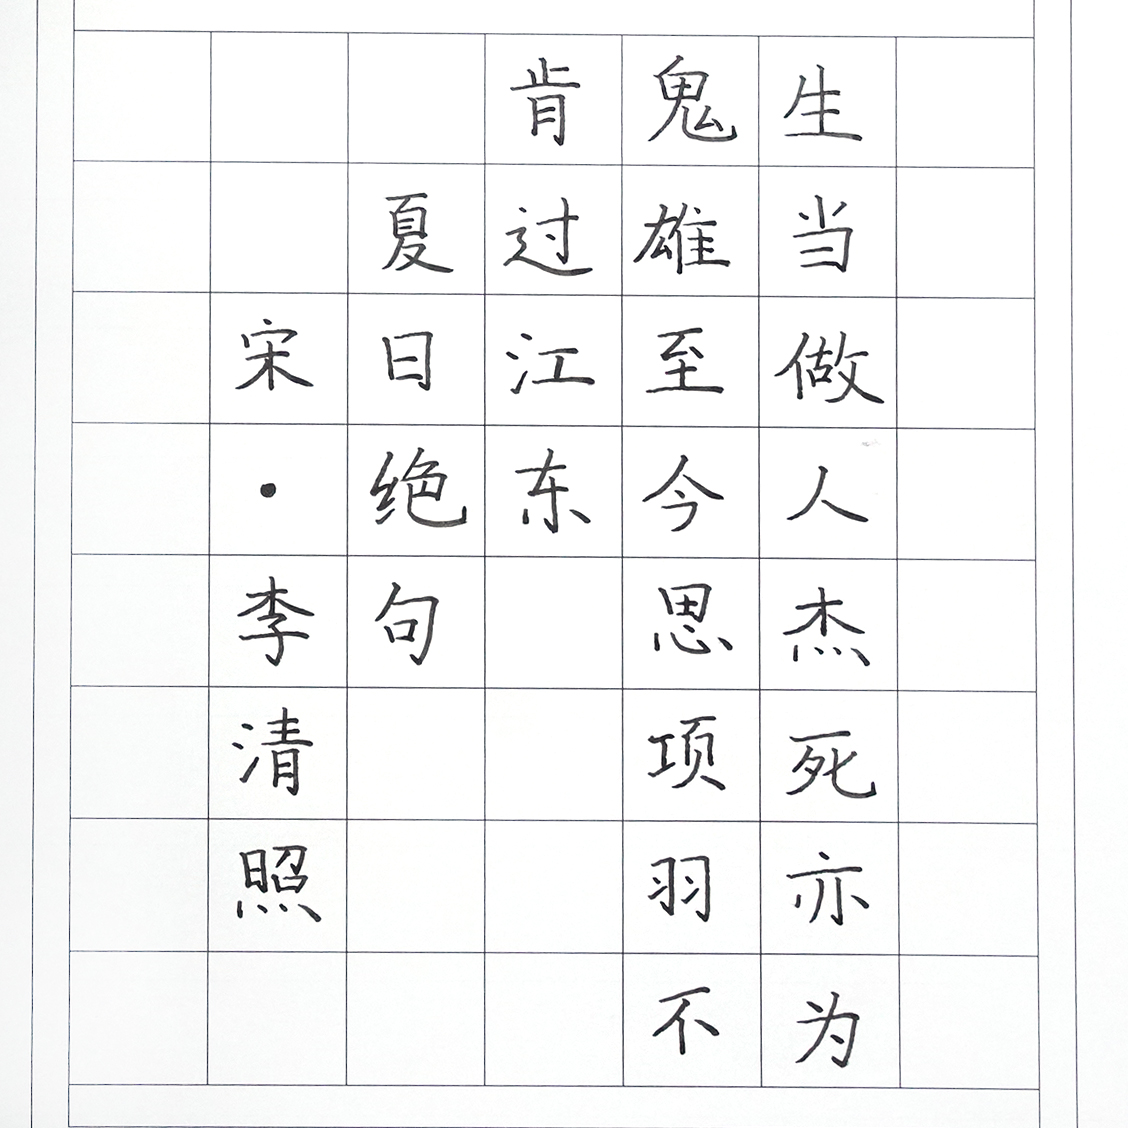 生当做人杰死亦为
鬼雄至今思项羽不
肯过江东
夏日绝句
宋·李清照